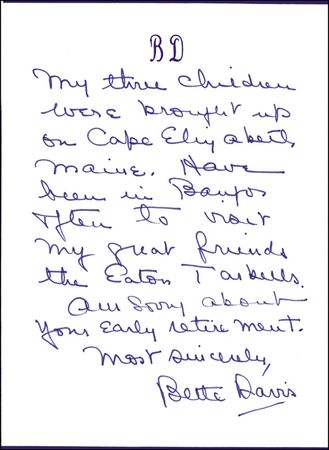 BD
My three children
were brought up
on Cape Elizabeth,
Maine. Have
been in Bangor
often to visit
my great friends
the Eaton Tarbells.
Am sorry about
your early retirement.
Most sincerely,
Bette Davis